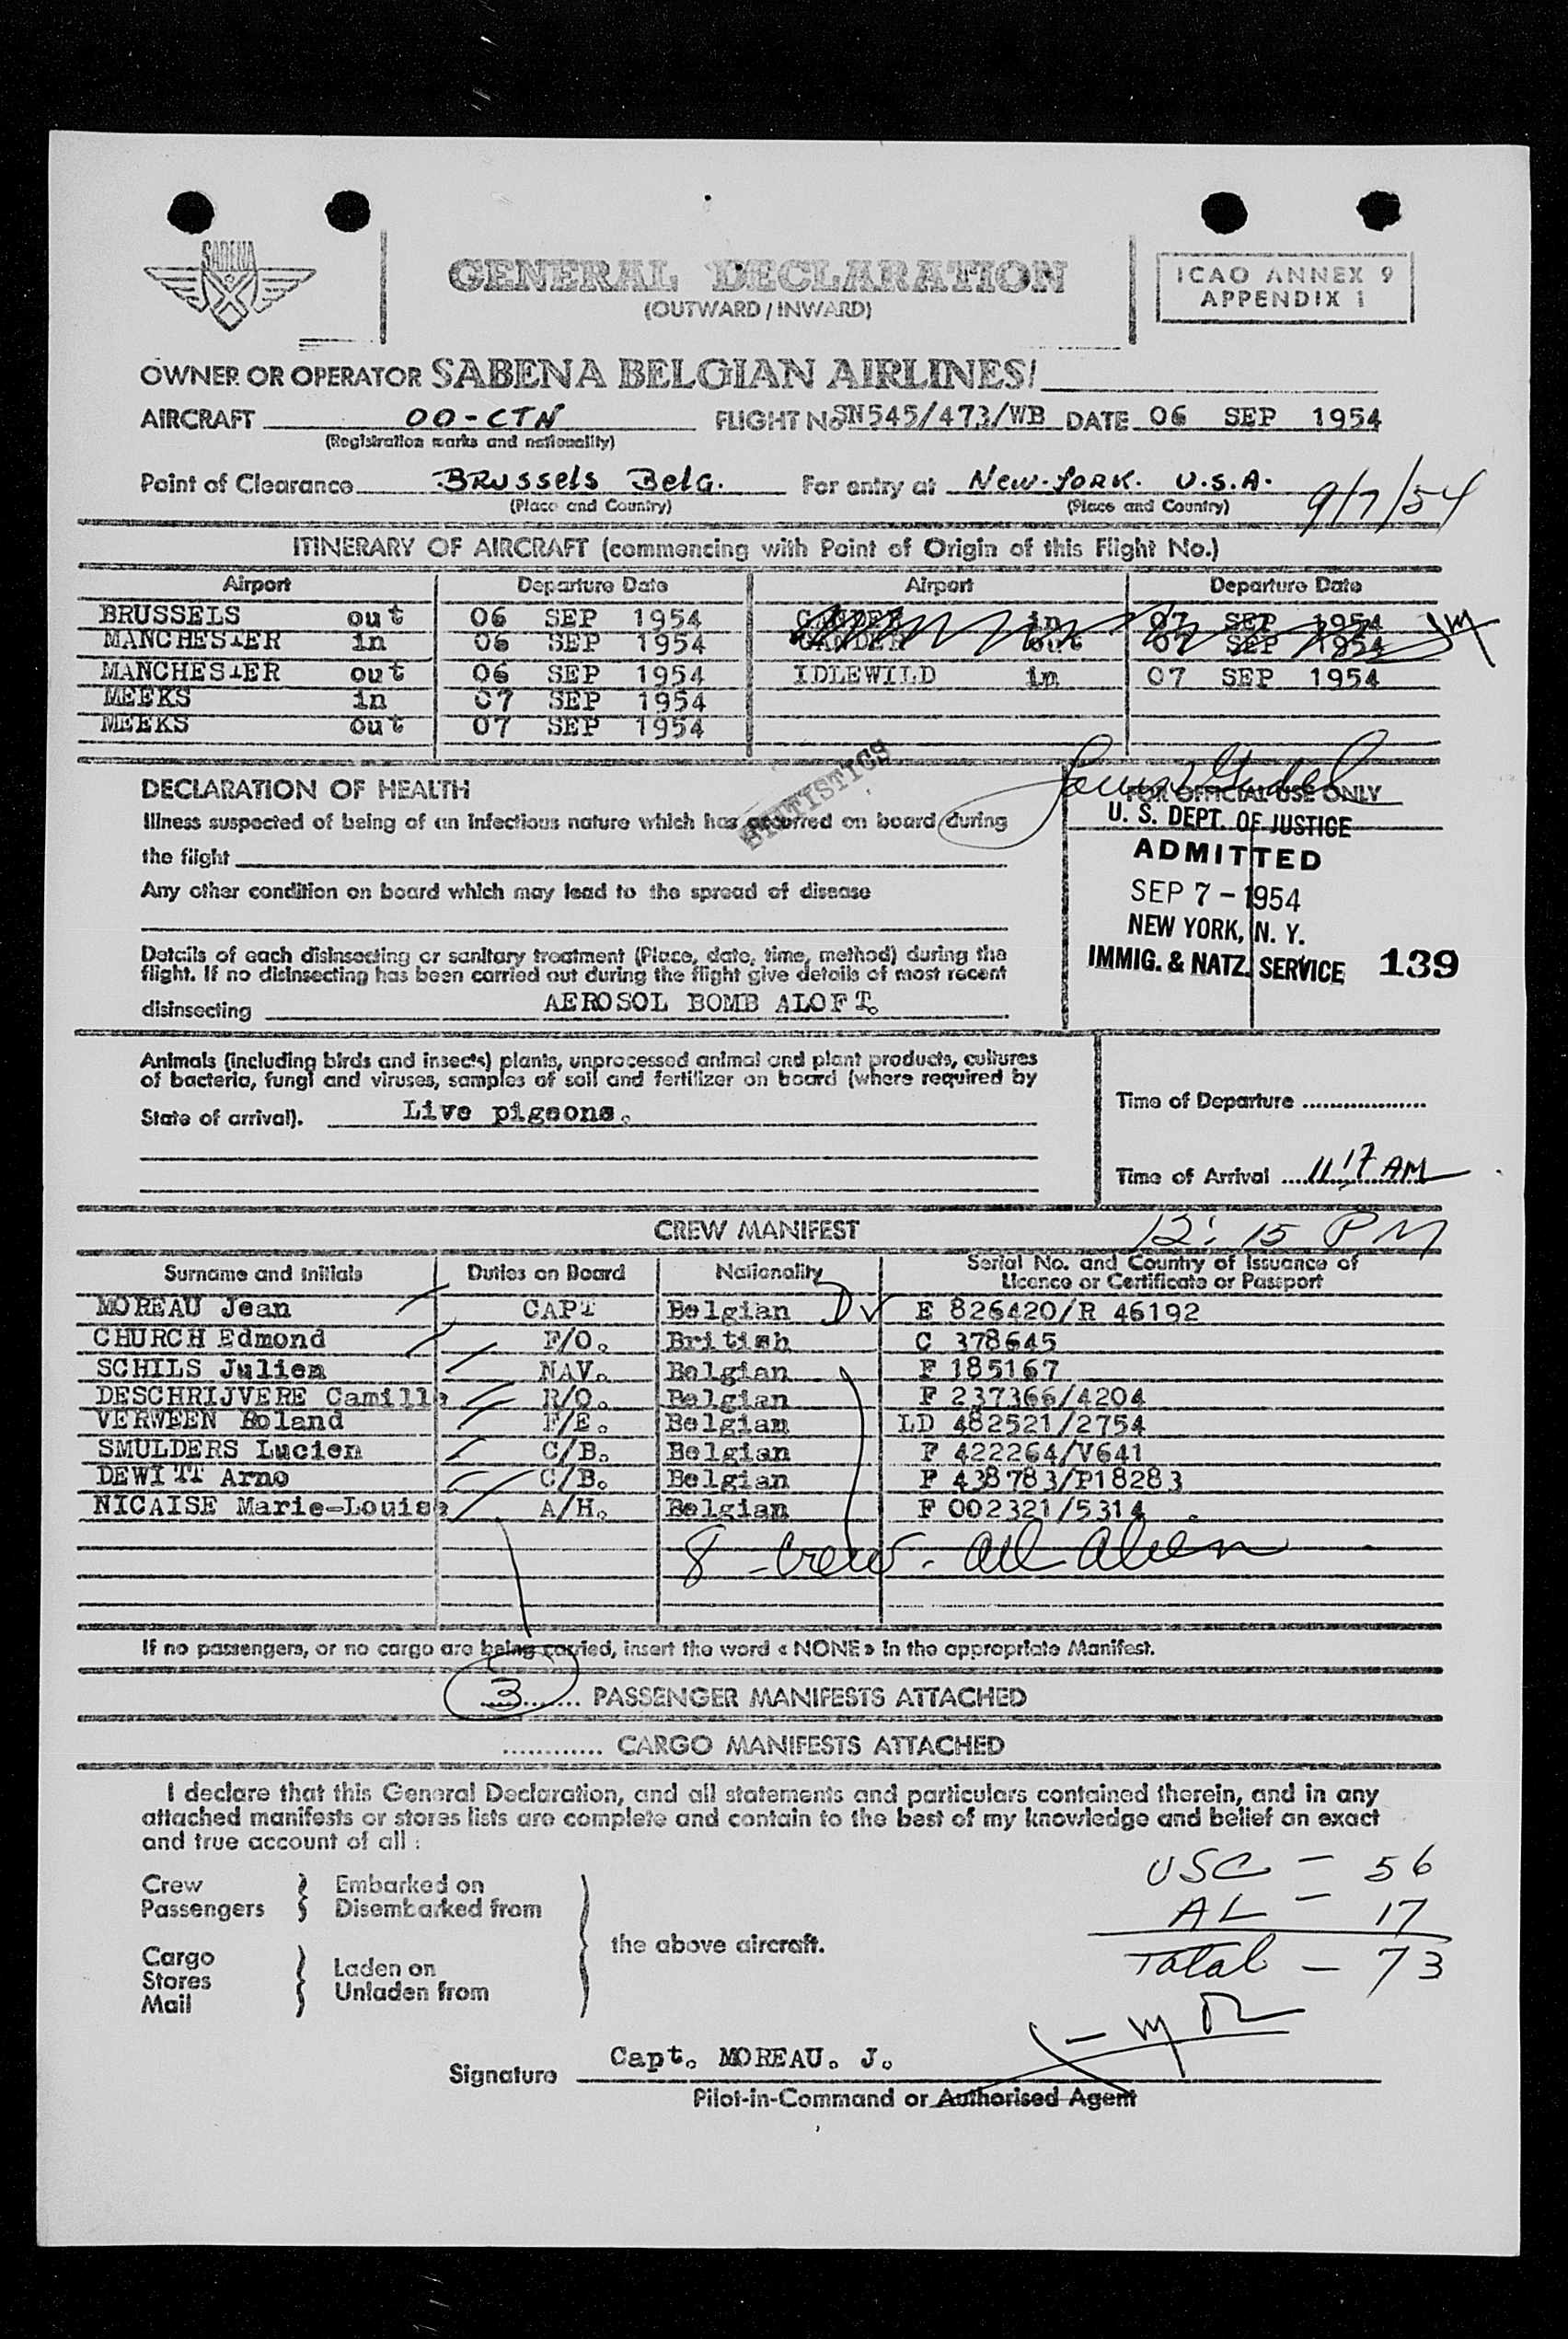 SABENA
GENERAL DECLARATION
(OUTWARD / INWARD)
ICAO ANNEX 9
APPENDIX 1
OWNER OR OPERATOR SABENA BELGIAN AIRLINES/
AIRCRAFT OO-CTN FLIGHT No SN545/473/WB DATE 06 SEP 1954
(Registration marks and nationality)
Point of Clearance BRUSSels Belg. For entry at New-York. U.S.A. 9/7/54
(Place and Country) (Place and Country)
ITINERARY OF AIRCRAFT (commencing with Point of Origin of this Flight No.)
Airport Departure Date Airport Departure Date
BRUSSELS out 06 SEP 1954 GANDER in 07 SEP 1954
MANCHESTER in 06 SEP 1954 GANDER out 07 SEP 1954
MANCHESTER out 06 SEP 1954 IDLEWILD in 07 SEP 1954
MEEKS in 07 SEP 1954
MEEKS out 07 SEP 1954
STATISTICS
DECLARATION OF HEALTH
Illness suspected of being of an infectious nature which has occurred on board during
the flight
Any other condition on board which may lead to the spread of disease
Details of each disinsecting or sanitary treatment (Place, date, time, method) during the
flight. If no disinsecting has been carried out during the flight give details of most recent
disinsecting AEROSOL BOMB ALOFT.
FOR OFFICIAL USE ONLY
U. S. DEPT. OF JUSTICE
ADMITTED
SEP 7 - 1954
NEW YORK, N. Y.
IMMIG. & NATZ. SERVICE 139
Animals (including birds and insects) plants, unprocessed animal and plant products, cultures
of bacteria, fungi and viruses, samples of soil and fertilizer on board (where required by
State of arrival). Live pigeons.
Time of Departure ...................
Time of Arrival 11:17 AM
12:15 PM
CREW MANIFEST
Surname and Initials Duties on Board Nationality Serial No. and Country of Issuance of
Licence or Certificate or Passport
MOREAU Jean CAPT Belgian E 826420/R 46192
CHURCH Edmond F/O. British C 378645
SCHILS Julien NAV. Belgian F 185167
DESCHRIJVERE Camille R/O. Belgian F 237366/4204
VERWEEN Roland F/E. Belgian LD 482521/2754
SMULDERS Lucien C/B. Belgian F 422264/V641
DEWITT Arno C/B. Belgian F 438783/P18283
NICAISE Marie-Louise A/H. Belgian F 002321/5314
8 - Crew - all alien
If no passengers, or no cargo are being carried, insert the word « NONE » in the appropriate Manifest.
3 PASSENGER MANIFESTS ATTACHED
............ CARGO MANIFESTS ATTACHED
I declare that this General Declaration, and all statements and particulars contained therein, and in any
attached manifests or stores lists are complete and contain to the best of my knowledge and belief an exact
and true account of all :
Crew
Passengers
Embarked on
Disembarked from
Cargo
Stores
Mail
Laden on
Unladen from
the above aircraft.
USC - 56
AL - 17
Total - 73
Signature Capt. MOREAU. J.
Pilot-in-Command or Authorised Agent